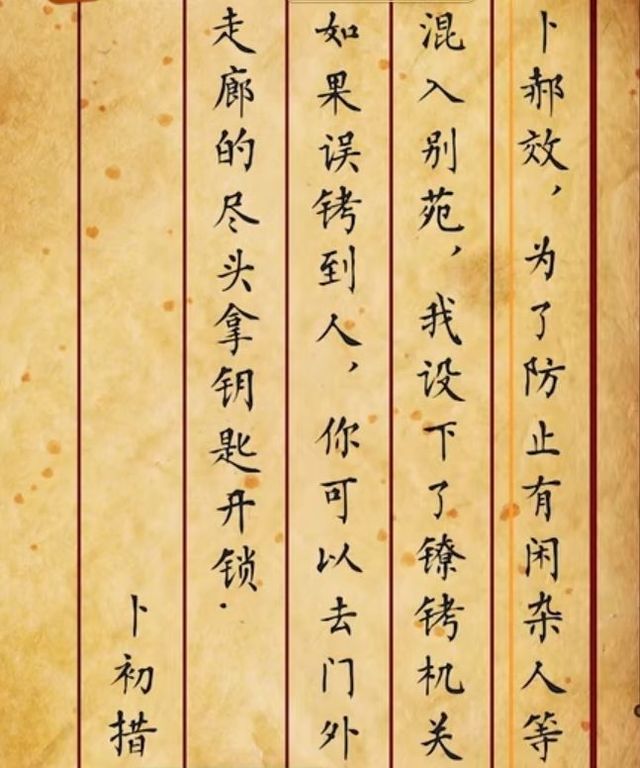 卜郝效，为了防止有闲杂人等
混入别苑，我设下了镣铐机关
如果误铐到人，你可以去门外
走廊的尽头拿钥匙开锁.
卜初措